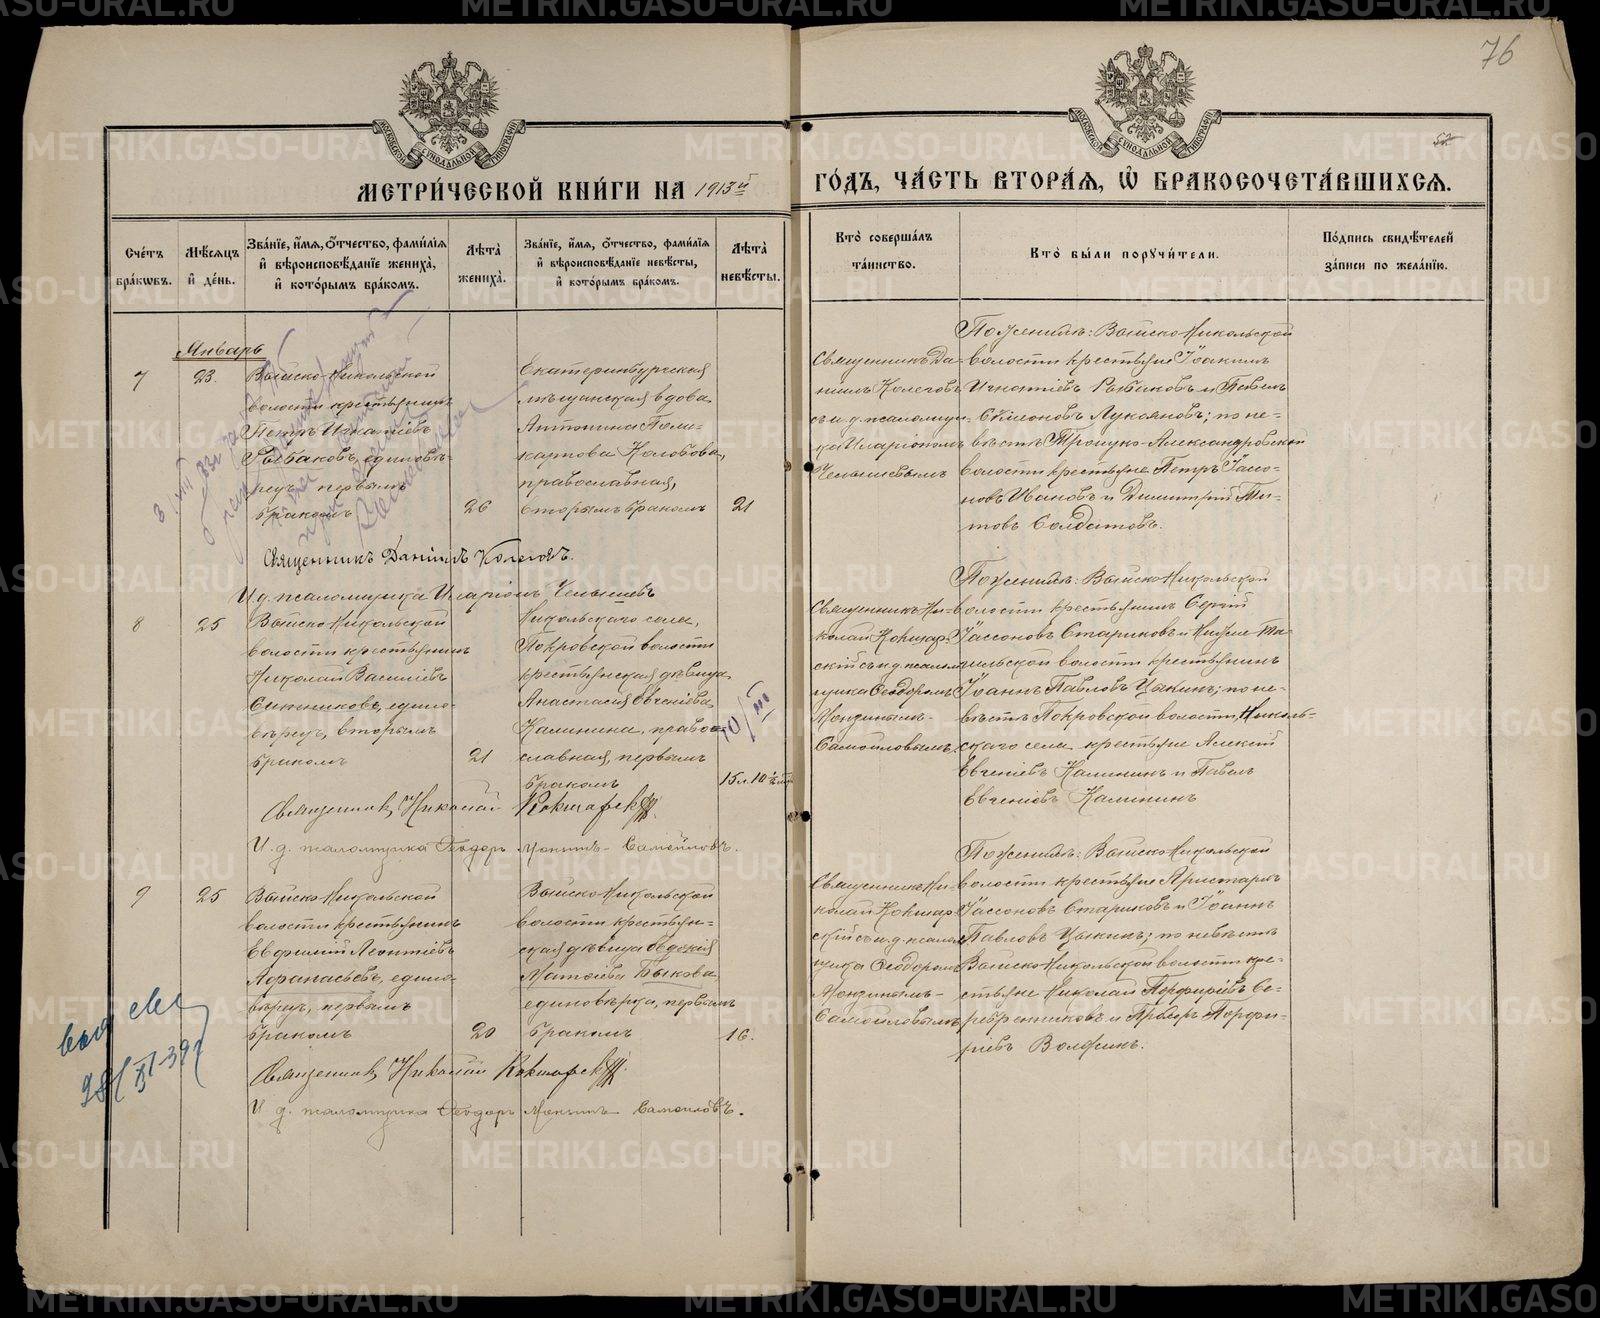 76
МЕТРИ́ЧЕСКОЙ КНИ́ГИ НА 1913й
ГО́ДЪ, ЧА́СТЬ ВТОРА́Я, Ѡ҆ БРАКОСОЧЕТА́ВШИХСЯ.
Сче́тъ бра́кѡвъ.
Мѣ́сяцъ и҆ де́нь.
Зва́нїе, и҆́мя, ѻ҆́тчество, фамі́лїя
и҆ вѣроисповѣ́данїе жениха̀,
и҆ кото́рымъ бра́комъ.
Лѣ́та жениха̀.
Зва́нїе, и҆́мя, ѻ҆́тчество, фамі́лїя
и҆ вѣроисповѣ́данїе невѣ́сты,
и҆ кото́рымъ бра́комъ.
Лѣ́та невѣ́сты.
Кто̀ соверша́лъ та́инство.
Кто̀ бы́ли поручи́тели.
По́дпись свидѣ́телей за́писи по жела́нїю.
Январь
7
23.
Выйско-Никольской
волости крестьянинъ
Петръ Игнатіевъ
Рыбаковъ, единовѣ-
рецъ, первымъ
бракомъ
26
Екатеринбургская
мѣщанская вдова
Антонина Поли-
карпова Колобова,
православная,
вторымъ бракомъ
21
Священникъ Да-
ніилъ Колеговъ
съ и. д. псаломщи-
ка Иларіономъ
Челышевымъ
По женихѣ: Выйско-Никольской
волости крестьяне Іоакимъ
Игнатіевъ Рыбаковъ и Павелъ
Симеоновъ Лукояновъ; по не-
вѣстѣ Троицко-Александровской
волости крестьяне Петръ Іассо-
новъ Ивановъ и Димитрій Ти-
товъ Солдатовъ.
Священникъ Даніилъ Колеговъ.
И. д. псаломщика Иларіонъ Челышевъ
8
25
Выйско-Никольской
волости крестьянинъ
Николай Василіевъ
Ситниковъ, едино-
вѣрецъ, вторымъ
бракомъ
21
Никольскаго села,
Покровской волости
крестьянская дѣвица
Анастасія Евгеніева
Калинина, право-
славная, первымъ
бракомъ
15 л. 10 ½ м.
Священникъ Ни-
колай Кокшар-
скій съ и. д. псалом-
щика Ѳеодоромъ
Мокинымъ-
Самойловымъ
По женихѣ: Выйско-Никольской
волости крестьянинъ Сергій
Іассоновъ Стариковъ и Нижне-Та-
гильской волости крестьянинъ
Іоаннъ Павловъ Цыкинъ; по не-
вѣстѣ Покровской волости, Николь-
скаго села крестьяне Алексій
Евгеніевъ Калининъ и Павелъ
Евгеніевъ Калининъ
Священникъ Николай Кокшарскій
И. д. псаломщика Ѳеодоръ Мокинъ-Самойловъ.
9
25
Выйско-Никольской
волости крестьянинъ
Евфимій Леонтіевъ
Афанасьевъ, едино-
вѣрецъ, первымъ
бракомъ
20
Выйско-Никольской
волости крестьян-
ская дѣвица Евдокія
Матѳіева Быкова,
единовѣрка, первымъ
бракомъ
16.
Священникъ Ни-
колай Кокшар-
скій съ и. д. псалом-
щика Ѳеодоромъ
Мокинымъ-
Самойловымъ
По женихѣ: Выйско-Никольской
волости крестьяне Аристархъ
Іассоновъ Стариковъ и Іоаннъ
Павловъ Цыкинъ; по невѣстѣ
Выйско-Никольской волости кре-
стьяне Николай Порфиріевъ Се-
ребренниковъ и Порфи-
ріевъ
Священникъ Николай Кокшарскій
И. д. псаломщика Ѳеодоръ Мокинъ-Самойловъ.
10/III
METRIKI.GASO-URAL.RU